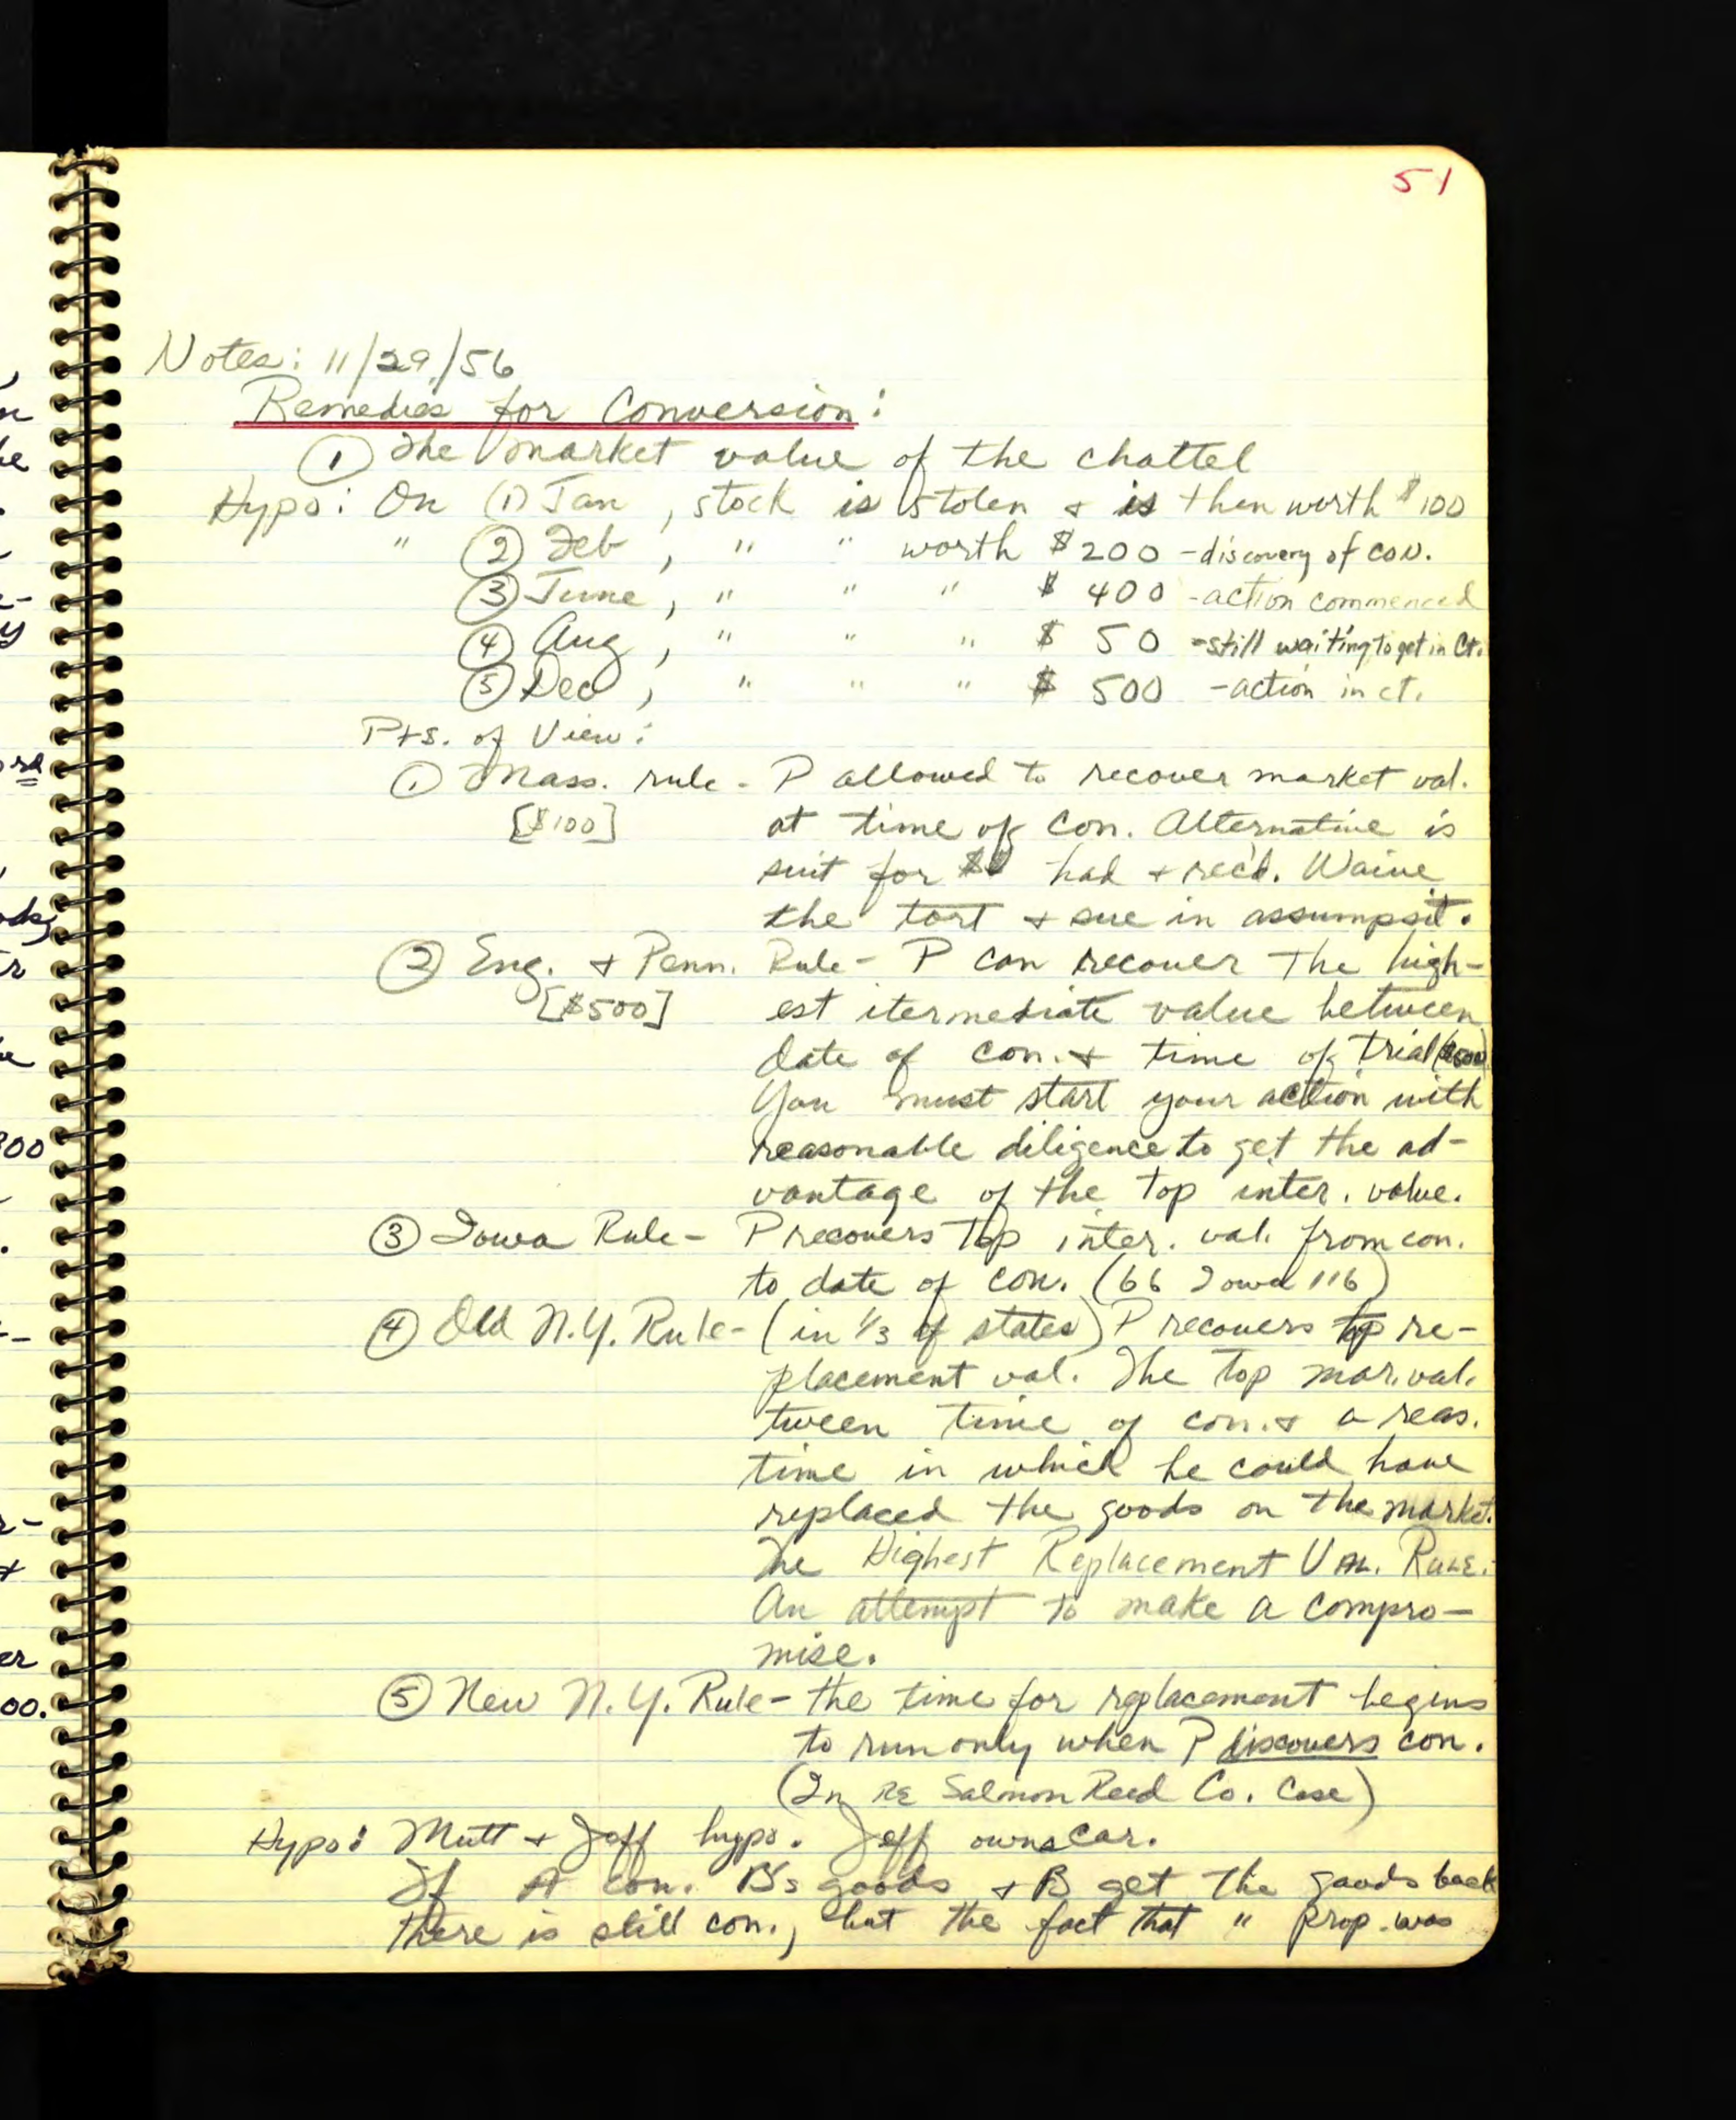 51
Notes: 11/29/56
Remedies for Conversion:
① The market value of the chattel
Hypo: On (1) Jan, stock is stolen + is then worth $100
" ② Feb, " " worth $200 - discovery of con.
③ June, " " " $ 400 - action commenced
④ Aug, " " " $ 50 - still waiting to get in Ct.
⑤ Dec, " " " $ 500 - action in ct.
Pts. of View:
① Mass. rule - P allowed to recover market val.
[$100] at time of con. Alternative is
suit for $ had + rec'd. Waive
the tort + sue in assumpsit.
② Eng. + Penn. Rule - P can recover the high-
[$500] est itermediate value between
date of con. + time of trial ($500)
You must start your action with
reasonable diligence to get the ad-
vantage of the top inter. value.
③ Iowa Rule - P recovers top inter. val. from con.
to date of con. (66 Iowa 116)
④ Old N.Y. Rule - (in 1/3 of states) P recovers top re-
placement val. The top mar. val.
tween time of con. + a reas.
time in which he could have
replaced the goods on the market.
The Highest Replacement Val. Rule.
An attempt to make a compro-
mise.
⑤ New N.Y. Rule - the time for replacement begins
to run only when P discovers con.
(In Re Salmon Reed Co. Case)
Hypo: Mutt + Jeff hypo. Jeff owns car.
If A con. B's goods + B get the goods back
there is still con., but the fact that " prop. was